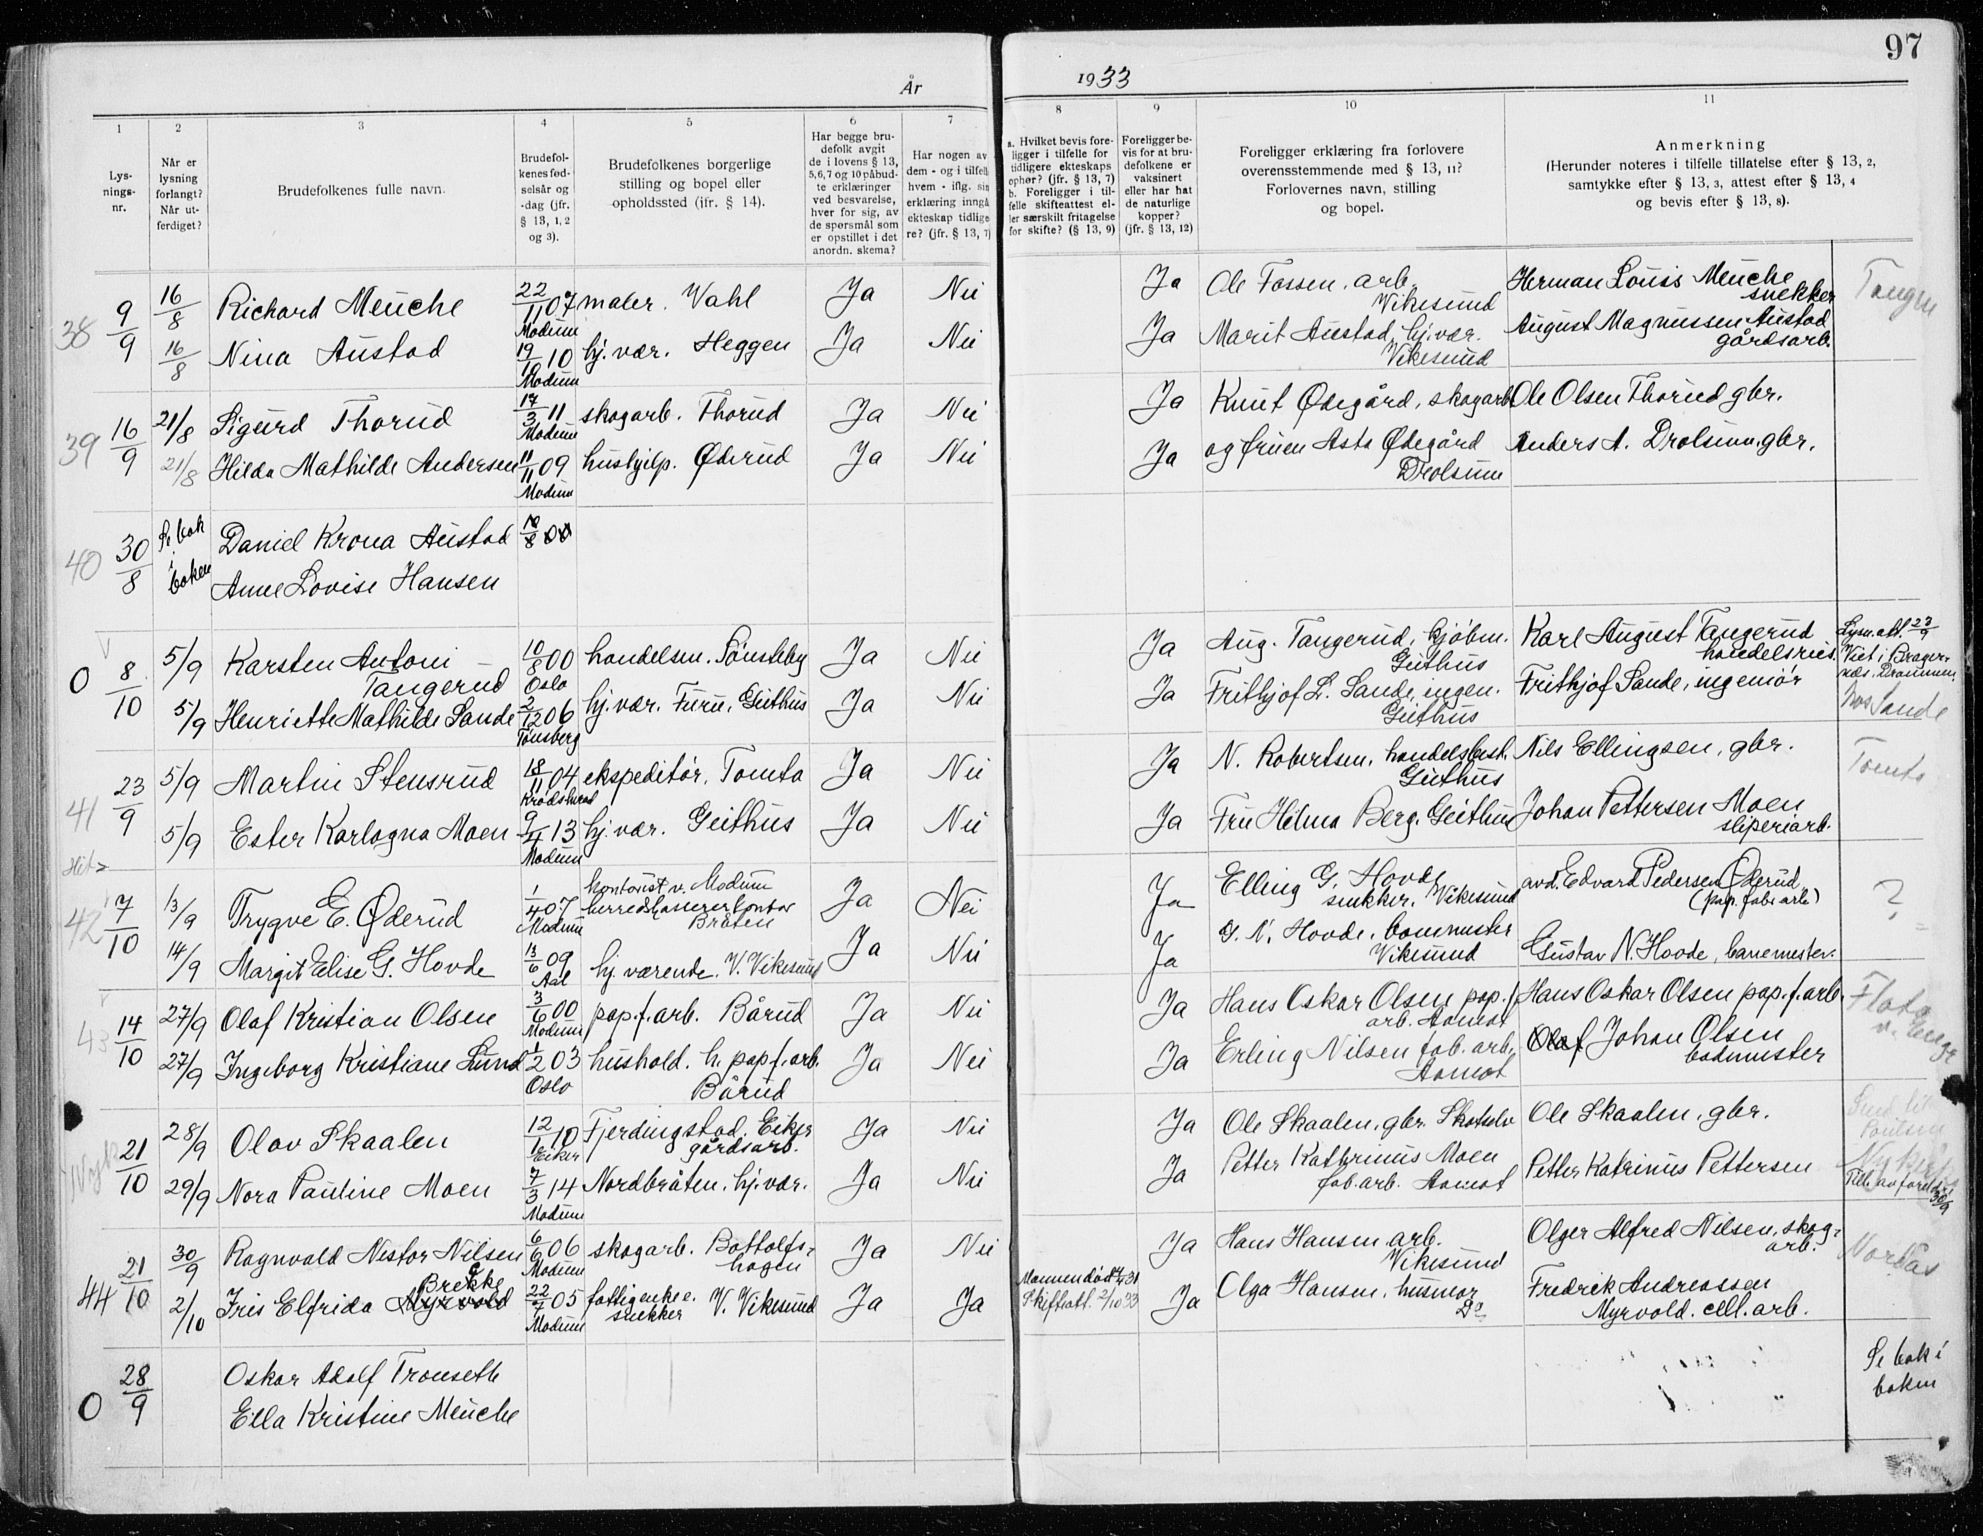 97
År 1933
1
2
3
4
5
6
7
8
9
10
11
Lys-
nings-
nr.
Når er
lysning
forlangt?
Når ut-
ferdiget?
Brudefolkenes fulle navn.
Brudefol-
kenes fød-
selsår og
-dag (jfr.
§ 13, 1, 2
og 3).
Brudefolkenes borgerlige
stilling og bopel eller
opholdssted (jfr. § 14).
Har begge bru-
defolk avgit
de i lovens § 13,
5,6,7 og 10 påbud-
te erklæringer
ved besvarelse,
hver for sig, av
de spørsmål som
er opstillet i det
anordn. skema?
Har nogen av
dem - og i tilfelle
hvem - iflg. sin
erklæring inngå
ekteskap tidlige
re? (jfr. § 13, 7)
a. Hvilket bevis fore-
ligger i tilfelle for
tidligere ekteskaps
ophør? (jfr. § 13, 7)
b. Foreligger i til-
felle skifteattest el-
ler særskilt fritagelse
for skifte? (§ 13, 9)
Foreligger be-
vis for at bru-
defolkene er
vaksinert
eller har hat
de naturlige
kopper?
(jfr. § 13, 12)
Foreligger erklæring fra forlovere
overensstemmende med § 13, 11?
Forlovernes navn, stilling
og bopel.
Anmerkning
(Herunder noteres i tilfelle tillatelse efter § 13, 2,
samtykke efter § 13, 3, attest efter § 13, 4
og bevis efter § 13, 8).
38 9/9 16/8 Richard Meuche 22/11 07 Modum maler. Wahl Ja Nei Ja Ole Fossen, arb. Vikesund Herman Louis Meuche snekker Tangen
16/8 Nina Austad 19/10 10 Modum hj. vær. Heggen Ja Nei Ja Marit Austad, hj. vær. Vikesund August Magnussen Austad gårdsarb.
39 16/9 21/8 Sigurd Thorud 17/3 11 Modum skogarb. Thorud Ja Nei Ja Knut Ødegård, skogarb Ole Olsen Thorud gbr.
21/8 Hilda Mathilde Andersen 11/11 09 Modum hushjelp. Øderud Ja Nei Ja og fruen Asta Ødegård Drolsum Anders A. Drolsum, gbr.
40 30/8 Se bak i boken Daniel Krona Austad 10/8 00
Anne Lovise Hansen
0 8/10 5/9 Karsten Antoni Tangerud 10/8 00 Oslo handelsm. Sønsteby Ja Nei Ja Aug. Tangerud, kjøbm. Geithus Karl August Tangerud handelsreis. Lysn.att. 23/9 Viet i Brager- næs, Drammen
5/9 Henriette Mathilde Sande 2/12 06 Tønsberg hj. vær. Furu, Geithus Ja Nei Ja Frithjof L. Sande, ingen. Geithus Frithjof Sande, ingeniør hos Sande
41 23/9 5/9 Martin Stensrud 18/11 04 Krødsherad ekspeditør, Tomta Ja Nei Ja N. Robertsen, handelsbest. Geithus Nils Ellingsen, gbr. Tomta
5/9 Ester Karlagna Moen 9/4 13 Modum hj. vær. Geithus Ja Nei Ja Fru Helma Berg, Geithus Johan Pettersen Moen sliperiarb.
42 7/10 13/9 Trygve E. Øderud 1/4 07 Modum kontorist v. Modum herredskassererkontor Bråten Ja Nei Ja Elling G. Hovde snekker, Vikesund avd. Edvard Pedersen Øderud (pap. fabr arb) ?
14/9 Margit Elise G. Hovde 13/6 09 Aal hj. værende. V. Vikesund Ja Nei Ja G. N. Hovde, banemester Vikesund Gustav N. Hovde, banemester.
43 14/10 27/9 Olaf Kristian Olsen 3/6 00 Modum pap.f.arb. Bårud Ja Nei Ja Hans Oskar Olsen pap. f. arb. Aamot Hans Oskar Olsen pap. f. arb. Flata v. Enge
27/9 Ingeborg Kristiane Lund 1/2 03 Oslo hushold. h. pap f. arb. Bårud Ja Nei Ja Erling Nilsen fab. arb., Aamot Olaf Johan Olsen bademester
21/10 28/9 Olav Skaalen 12/1 10 Eiker Fjerdingstad, Eiker gårdsarb. Ja Nei Ja Ole Skaalen, gbr. Skotselv Ole Skaalen, gbr.
29/9 Nora Pauline Moen 7/3 14 Modum Nordbråten, hj. vær. Ja Nei Ja Petter Kathrinus Moen fab. arb. Aamot Petter Katrinus Pettersen
44 21/10 30/9 Ragnvald Nestor Nilsen 6/6 06 Modum skogarb. Bottolfs- hagen Ja Nei Ja Hans Hansen arb. Vikesund Olger Alfred Nilsen, skog- arb. Nordås
2/10 Iris Elfrida Brekke Myrvold 22/7 05 Modum fattigenke e. snekker V. Vikesund Ja Ja Mannen død Skifteatt. 2/10 33 Ja Olga Hansen, husmor Do Fredrik Andreassen Myrvold. cell. arb.
0 28/9 Oskar Adolf Tronseth Se bak i boken
Ella Kristine Meuche